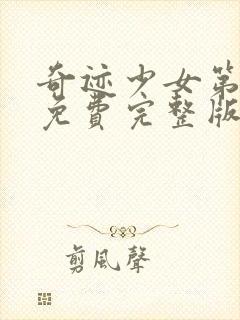 奇迹少女第
免費完整版
剪風聲